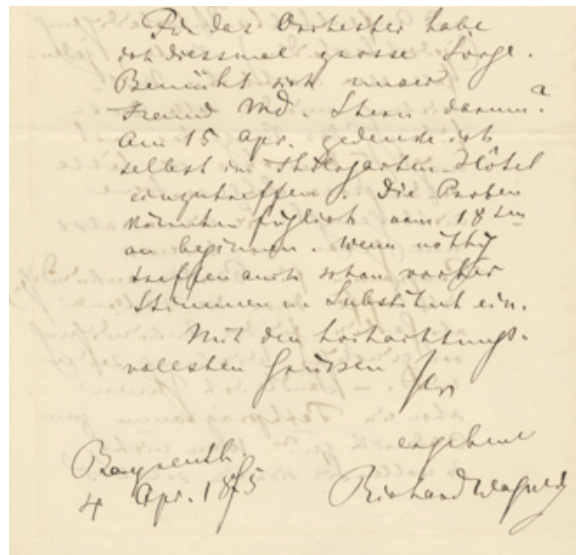 Für das Orchester habe
ich diessmal grosse Sorge.
Bemüht sich unser
Freund Md. Stern darum?
Am 15 Apr. gedenke ich
selbst im Thiergarten-Hôtel
einzutreffen. Die Proben
könnten füglich vom 18ten
an beginnen. Wenn nöthig
treffen auch schon vorher
Stimmen u. Substitut ein.
Mit den hochachtungs-
vollsten Grüssen Ihr
ergebener
Bayreuth.
4 Apr. 1875
Richard Wagner